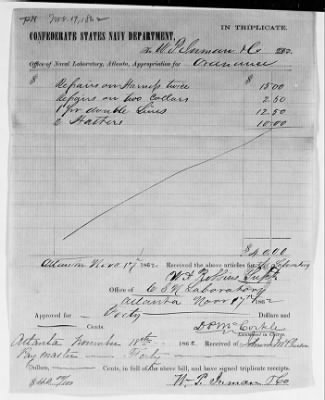 Nov. 17, 1862
IN TRIPLICATE.
CONFEDERATE STATES NAVY DEPARTMENT,
To W. P. Inman & Co Dr.
Office of Naval Laboratory, Atlanta, Appropriation for Ordnance
$ $
Repairs on Harness twice 15 00
Repairs on two Collars 2.50
1 pr double Lines 12.50
2 Halters 10.00
$40.00
Atlanta Nov 17th 1862. Received the above articles for the Laboratory
Robbins Supt
Office of C S N Laboratory
Atlanta Nov 17th 1862
Approved for Forty Dollars and
Cents. D P McCorkle
Atlanta November 18th 1862. Received of
Paymaster Forty
Dollars, Cents, in full of the above bill, and have signed triplicate receipts.
$40 W. P. Inman & Co